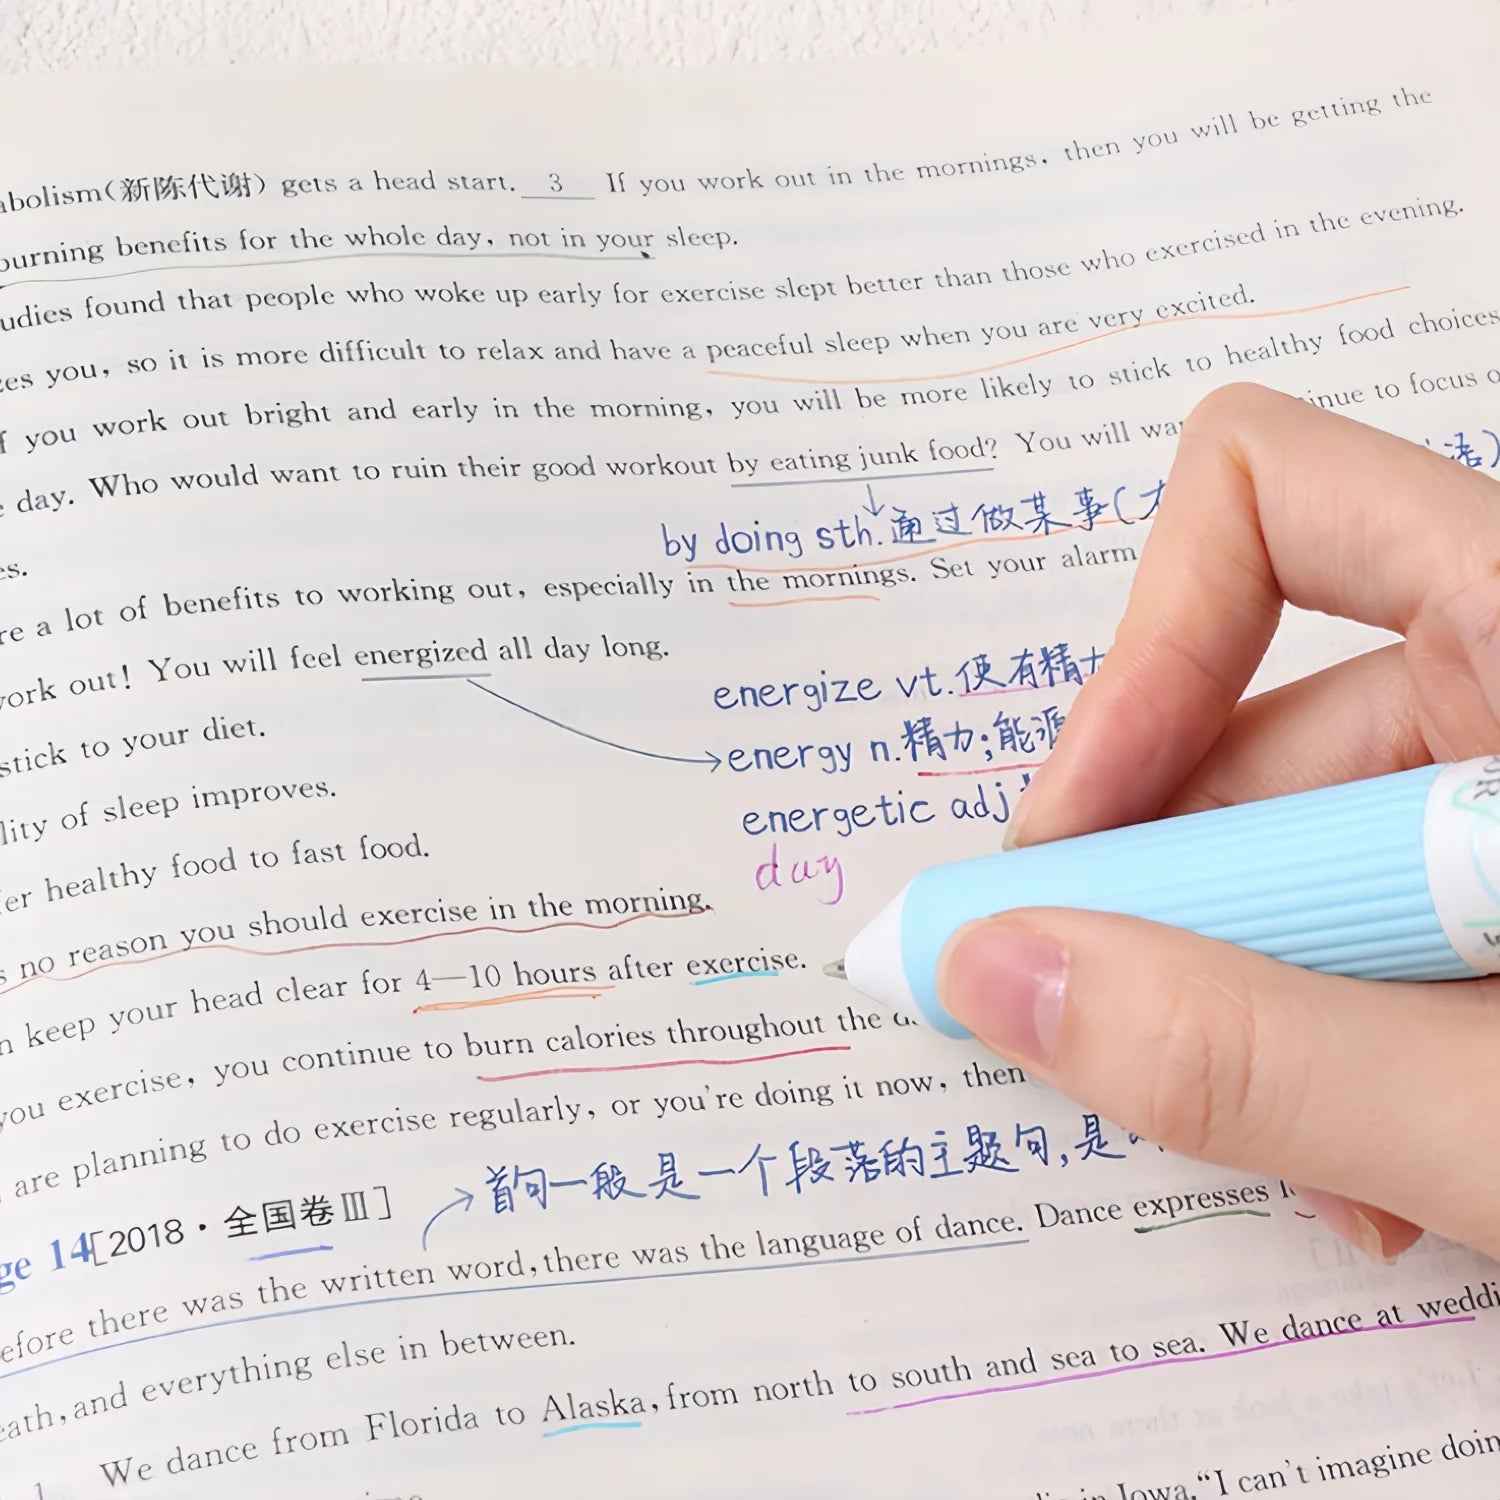 abolism(新陈代谢) gets a head start. 3 If you work out in the mornings, then you will be getting the
burning benefits for the whole day, not in your sleep.
udies found that people who woke up early for exercise slept better than those who exercised in the evening.
zes you, so it is more difficult to relax and have a peaceful sleep when you are very excited.
f you work out bright and early in the morning, you will be more likely to stick to healthy food choices
e day. Who would want to ruin their good workout by eating junk food? You will wa inue to focus o
by doing sth.通过做某事( 活)
es.
re a lot of benefits to working out, especially in the mornings. Set your alarm
work out! You will feel energized all day long.
energize vt.使有精力
stick to your diet.
energy n.精力;能源
lity of sleep improves.
energetic adj
er healthy food to fast food.
day
s no reason you should exercise in the morning.
n keep your head clear for 4—10 hours after exercise.
you exercise, you continue to burn calories throughout the
are planning to do exercise regularly, or you're doing it now, then
首句一般是一个段落的主题句,是
ge 14[2018·全国卷Ⅲ]
efore there was the written word,there was the language of dance. Dance expresses
eath,and everything else in between.
We dance from Florida to Alaska,from north to south and sea to sea. We dance at weddi
1
in Iowa,“I can't imagine doin